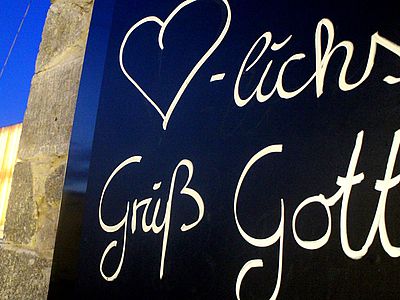 ♡-lichs
Grüß Gott